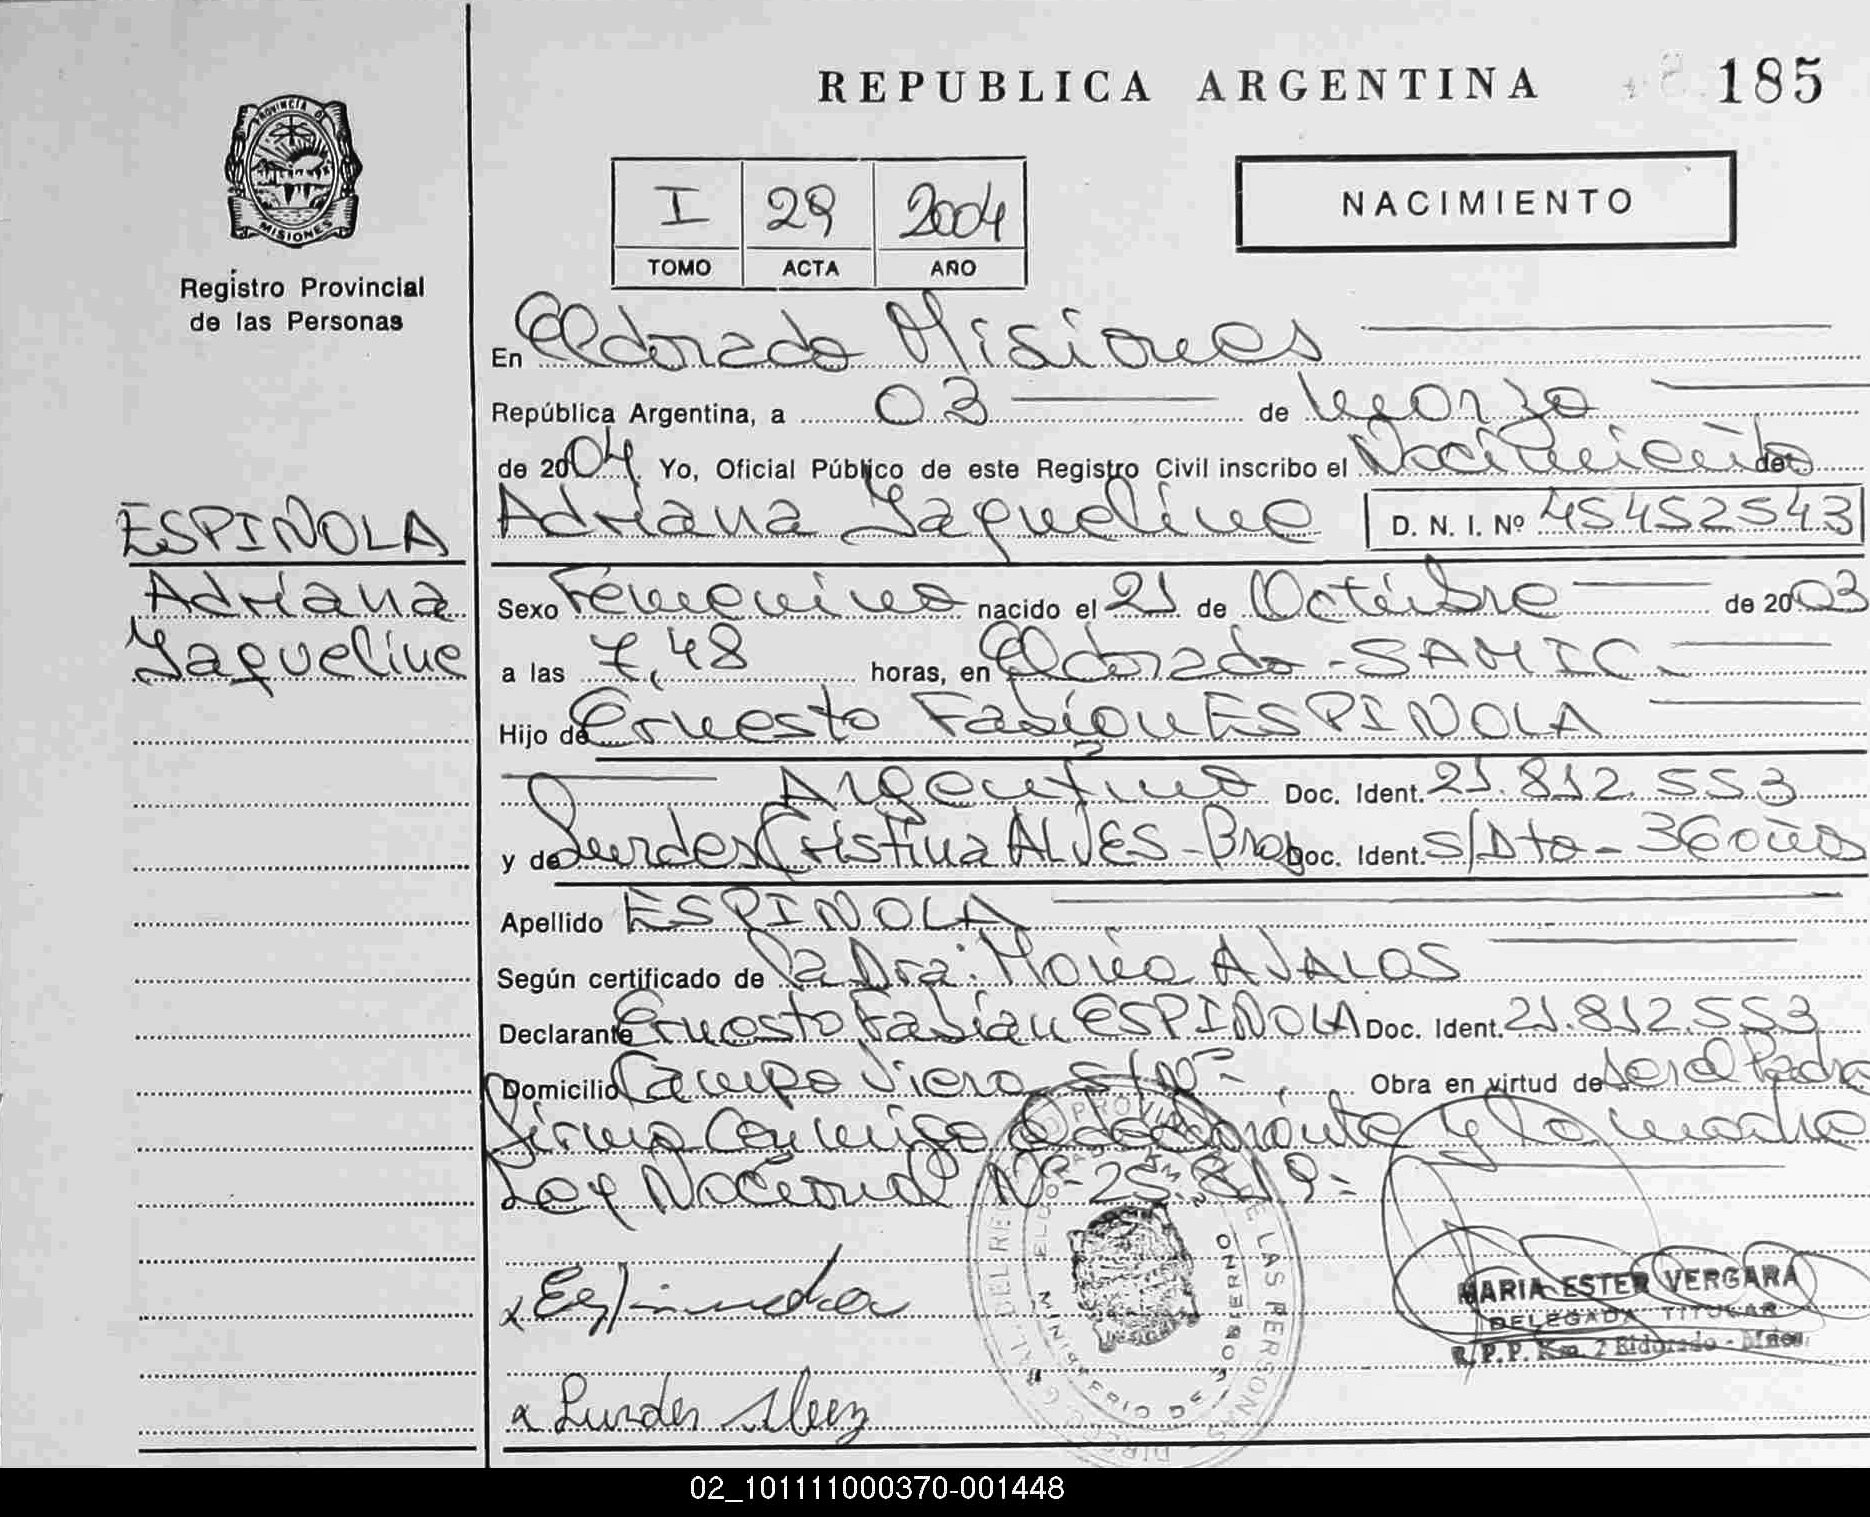 REPUBLICA ARGENTINA 185
PROVINCIA DE
MISIONES
Registro Provincial
de las Personas
I 29 2004
TOMO ACTA AÑO
NACIMIENTO
En Eldorado Misiones
República Argentina, a 03 de Marzo
de 2004 Yo, Oficial Público de este Registro Civil inscribo el Nacimiento de
ESPINOLA
Adriana
Yaqueline
Adriana Yaqueline D. N. I. Nº 45452543
Sexo Femenino nacido el 21 de Octubre de 2003
a las 7,48 horas, en Eldorado - SAMIC.
Hijo de Ernesto Fabián ESPINOLA
Argentino Doc. Ident. 21.812.553
y de Lurdes Cristina ALVES - Bra Doc. Ident. s/Dto - 36 años
Apellido ESPINOLA
Según certificado de la Dra: María AVALOS
Declarante Ernesto Fabián ESPINOLA Doc. Ident. 21.812.553
Domicilio Campo Viera s/Nº Obra en virtud de ser el Padre
firma conmigo el declarante y la madre
Ley Nacional Nº 25.819
x Espindola
x Lurdes Alvez
MARIA ESTER VERGARA
DELEGADA TITULAR
R.P.P. Km. 2 Eldorado - Mnes.
MINISTERIO DE GOBIERNO
DE LAS PERSONAS
02_101111000370-001448